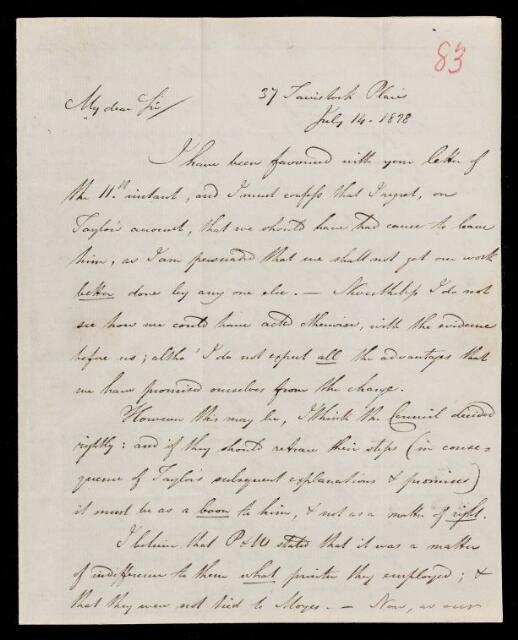 83
37 Tavistock Place
My dear Sir/
July 14. 1828
I have been favoured with your letter of
the 11.th instant, and I must confess that I regret, on
Taylor's account, that we should have had cause to leave
him, as I am persuaded that we shall not get our work
better done by any one else. — Nevertheless I do not
see how we could have acted otherwise, with the evidence
before us; altho' I do not expect all the advantages that
we have promised ourselves from the change.
However this may be, I think the Council decided
rightly: and if they should retrace their steps (in conse-
quence of Taylor's subsequent explanations & promises)
it must be as a boon to him, & not as a matter of right.
I believe that P & W stated that it was a matter
of indifference to them what printer they employed; &
that they were not tied to Moyes. — Now, as our